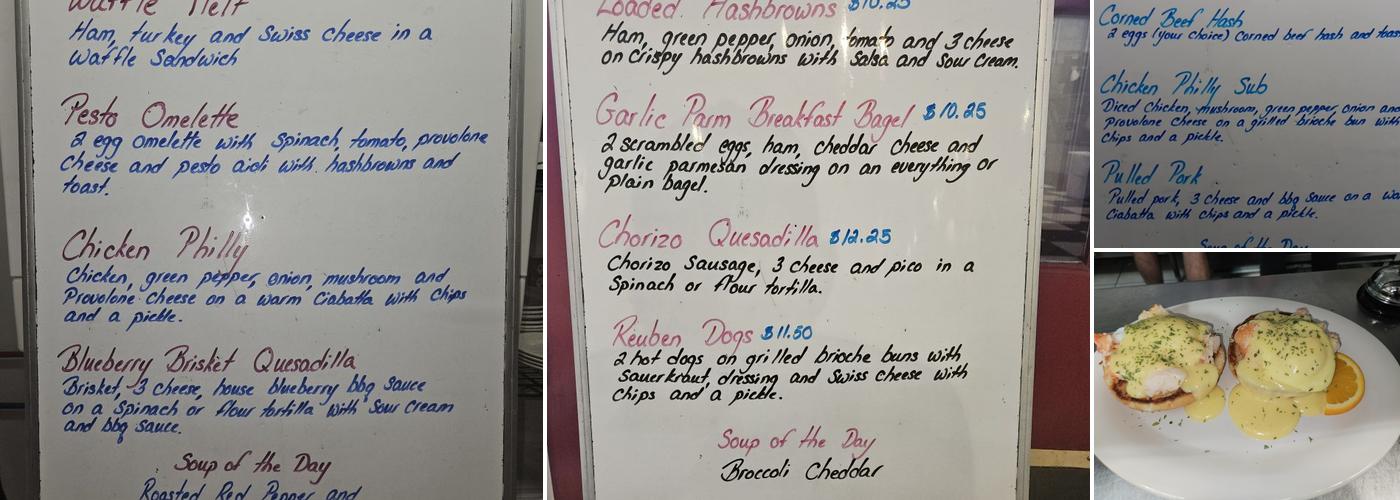 Waffle Melt
Ham, turkey and Swiss cheese in a
Waffle Sandwich
Pesto Omelette
2 egg omelette with Spinach, tomato, provolone
Cheese and pesto aioli with hashbrowns and
toast.
Chicken Philly
Chicken, green pepper, onion, mushroom and
Provolone cheese on a warm Ciabatta with Chips
and a pickle.
Blueberry Brisket Quesadilla
Brisket, 3 cheese, house blueberry bbq sauce
on a Spinach or flour tortilla with Sour Cream
and bbq sauce.
Soup of the Day
Roasted Red Pepper and
Loaded Hashbrowns $10.25
Ham, green pepper, onion, tomato and 3 cheese
on Crispy hashbrowns with Salsa and Sour Cream.
Garlic Parm Breakfast Bagel $10.25
2 scrambled eggs, ham, cheddar cheese and
garlic parmesan dressing on an everything or
plain bagel.
Chorizo Quesadilla $12.25
Chorizo Sausage, 3 Cheese and pico in a
Spinach or flour tortilla.
Reuben Dogs $11.50
2 hot dogs on grilled brioche buns with
Sauerkraut, dressing and Swiss cheese with
Chips and a pickle.
Soup of the Day
Broccoli Cheddar
Corned Beef Hash
2 eggs (your choice) Corned beef hash and toas
Chicken Philly Sub
Diced Chicken, mushroom, green pepper, onion and
Provolone Cheese on a grilled brioche bun with
Chips and a pickle.
Pulled Pork
Pulled pork, 3 cheese and bbq sauce on a wa
Ciabatta with chips and a pickle.
Soup of the Day